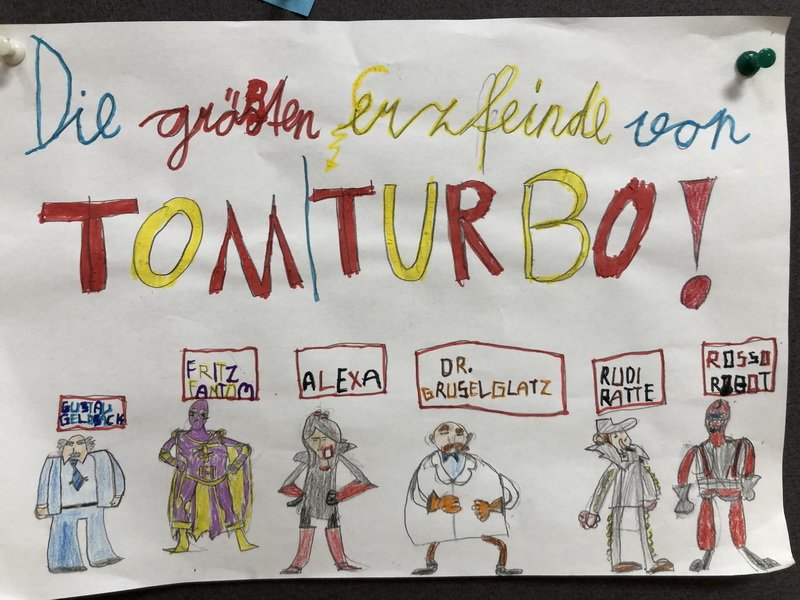 Die größten Erzfeinde von
TOM TURBO!
GUSTAV GELDSACK
FRITZ FANTOM
ALEXA
DR. GRUSELGLATZ
RUDI RATTE
ROSSO ROBOT